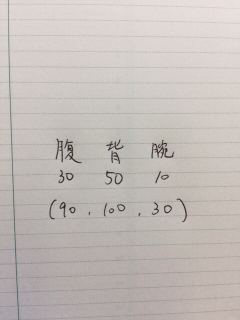 腹 背 腕
30 50 10
(90, 100, 30)